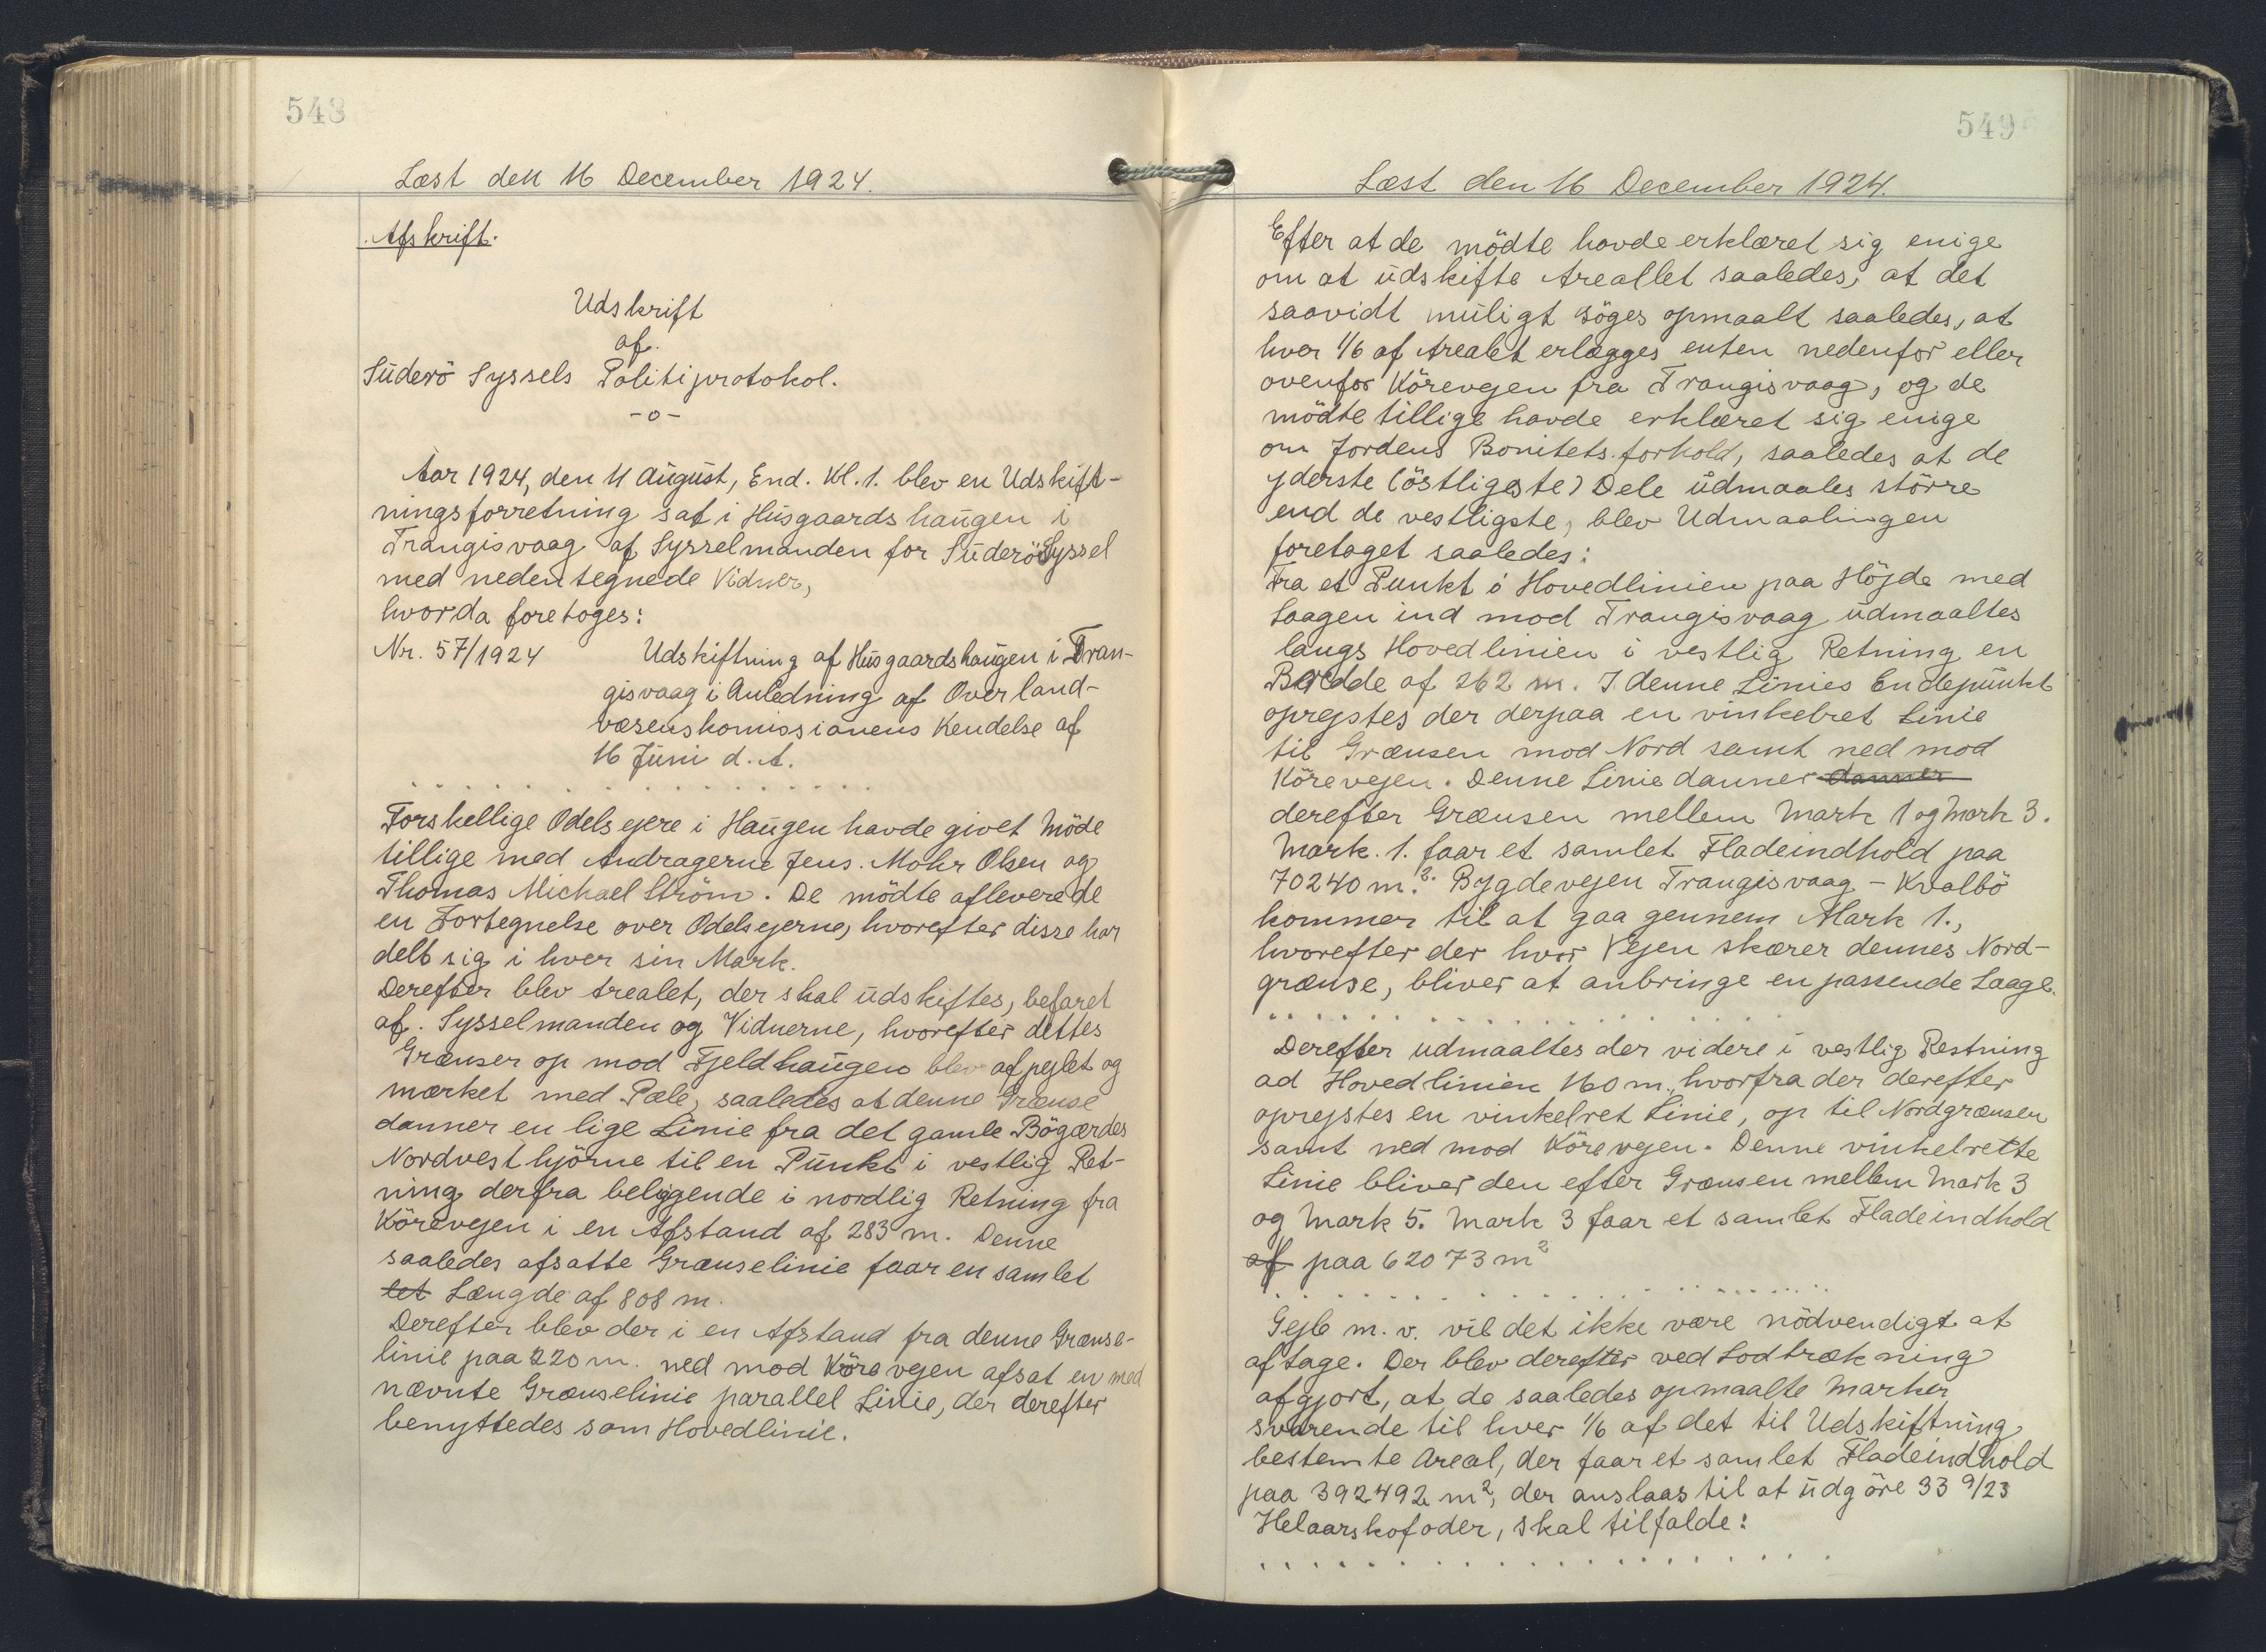 548
Læst den 16 December 1924.
Afskrift.
Udskrift
af
Süderö Syssels Politiprotokol.
-o-
Aar 1924, den 11 August, End. Kl. 1. blev en Udskift-
ningsforretning sat i Husgaardshaugen i
Trangisvaag af Sysselmanden for Süderö Syssel
med nedentegnede Vidner,
hvorda foretoges:
Nr. 57/1924 Udskiftning af Husgaardshaugen i Tran-
gisvaag i Anledning af Overland-
væsenskomissionens Kendelse af
16 Juni d. A.
. . . . . . . . . . . . . . . . . .
Forskellige Odelsejere i Haugen havde givet Möde
tillige med Andragerne Jens. Mohr Olsen og
Thomas Michael Ström. De mödte afleverede
en Fortegnelse over Odelsejerne, hvorefter disse har
delt sig i hver sin Mark.
Derefter blev Arealet, der skal udskiftes, befaret
af. Sysselmanden og Vidnerne, hvorefter dettes
Grænser op mod Fjeldhaugen blev afpejlet og
mærket med Pæle, saaledes at denne Grænse
danner en lige Linie fra det gamle Bögærdes
Nordvesthjörne til en Punkt i vestlig Ret-
ning derfra beliggende i nordlig Retning fra
Körevejen i en Afstand af 283 m. Denne
saaledes afsatte Grænselinie faar en samlet
let Længde af 808 m.
Derefter blev der i en Afstand fra denne Grænse-
linie paa 220 m. ned mod Körevejen afsat en med
nævnte Grænselinie parallel Linie, der derefter
benyttedes som Hovedlinie.
549
Læst den 16 December 1924.
Efter at de mödte havde erklæret sig enige
om at udskifte Areallet saaledes, at det
saavidt muligt söges opmaalt saaledes, at
hver 1/6 af Arealet erlægges enten nedenfor eller
ovenfor Körevejen fra Trangisvaag, og de
mödte tillige havde erklæret sig enige
om Jordens Bonitets.forhold, saaledes at de
yderste (östligste) Dele udmaales större
end de vestligste, blev Udmaalingen
foretaget saaledes:
Fra et Punkt i Hovedlinien paa Höjde med
Laagen ind mod Trangisvaag udmaaltes
langs Hovedlinien i vestlig Retning en
Bredde af 262 m. I denne Linies Endepunkt
oprejstes der derpaa en vinkelret Linie
til Grænsen mod Nord samt ned mod
Körevejen. Denne Linie danner danner
derefter Grænsen mellem Mark 1 og Mark 3.
Mark. 1. faar et samlet Fladeindhold paa
70240 m.². Bygdevejen Trangisvaag - Kvalbö
kommer til at gaa gennem Mark 1.,
hvorefter der hvor Vejen skærer dennes Nord-
grænse, bliver at anbringe en passende Laage.
. . . . . . . . . . . . . . . . . .
Derefter udmaaltes der videre i vestlig Restning
ad Hovedlinien 160 m., hvorfra der derefter
oprejstes en vinkelret Linie, op til Nordgrænsen
samt ned mod Körevejen. Denne vinkelrette
Linie bliver den efter Grænsen mellem Mark 3
og Mark 5. Mark 3 faar et samlet Fladeindhold
af paa 62073 m²
. . . . . . . . . . . . . . . . . .
Gejle m. v. vil det ikke være nödvendigt at
aftage. Der blev derefter ved Lodtrækning
afgjort, at de saaledes opmaalte Marker
svarende til hver 1/6 af det til Udskiftning
bestemte Areal, der faar et samlet Fladeindhold
paa 392492 m², der anslaas til at udgöre 33 9/23
Helaarskofoder, skal tilfalde:
. . . . . . . . . . . . . . . . . .